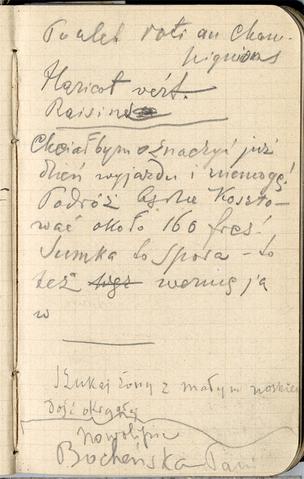 Poulet roti au Cham-
pignons
Haricot vert.
Raisins
Chciałbym oznaczyć już
dzień wyjazdu i niemogę!
Podróż będzie koszto-
wać około 160 frcs!
Sumka to spora – to
też wezmę ją
w
Szukaj żony z małym noskiem
Dość okrągłą
Bocheńska